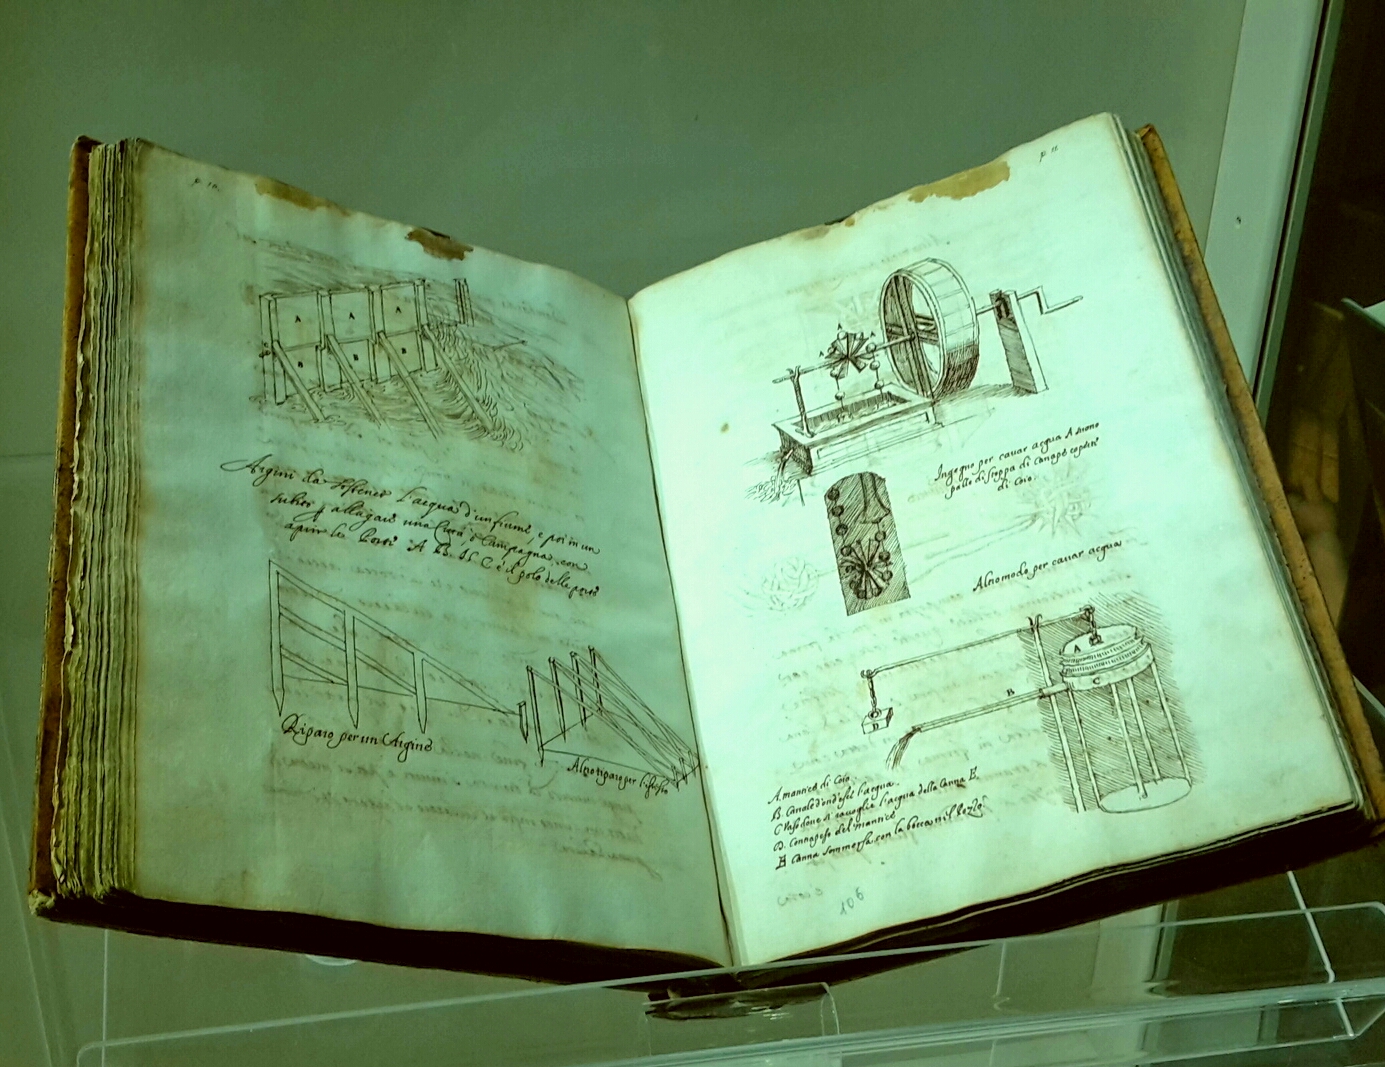 p. 10.
A A A
B B B
Argini da sostener l'acqua d'un fiume, e poi in un
subito allagare una Città, ò Campagna con
aprir le Porte A B. et C è il polo delle porte
Riparo per un Argine
Altro riparo per
p. 11
A A A
Ingegno per cavar acqua A sono
palle di stoppa di Canape coperte
di Coio.
Altro modo per cavar acqua
A
C
B
D
A. mantice di Coio.
B. Canale dond'esce l'acqua.
C. Vaso dove si racoglie l'acqua della Canna E.
D. Contrapeso del mantice
E Canna sommersa con la bocca nel Pozzo
106